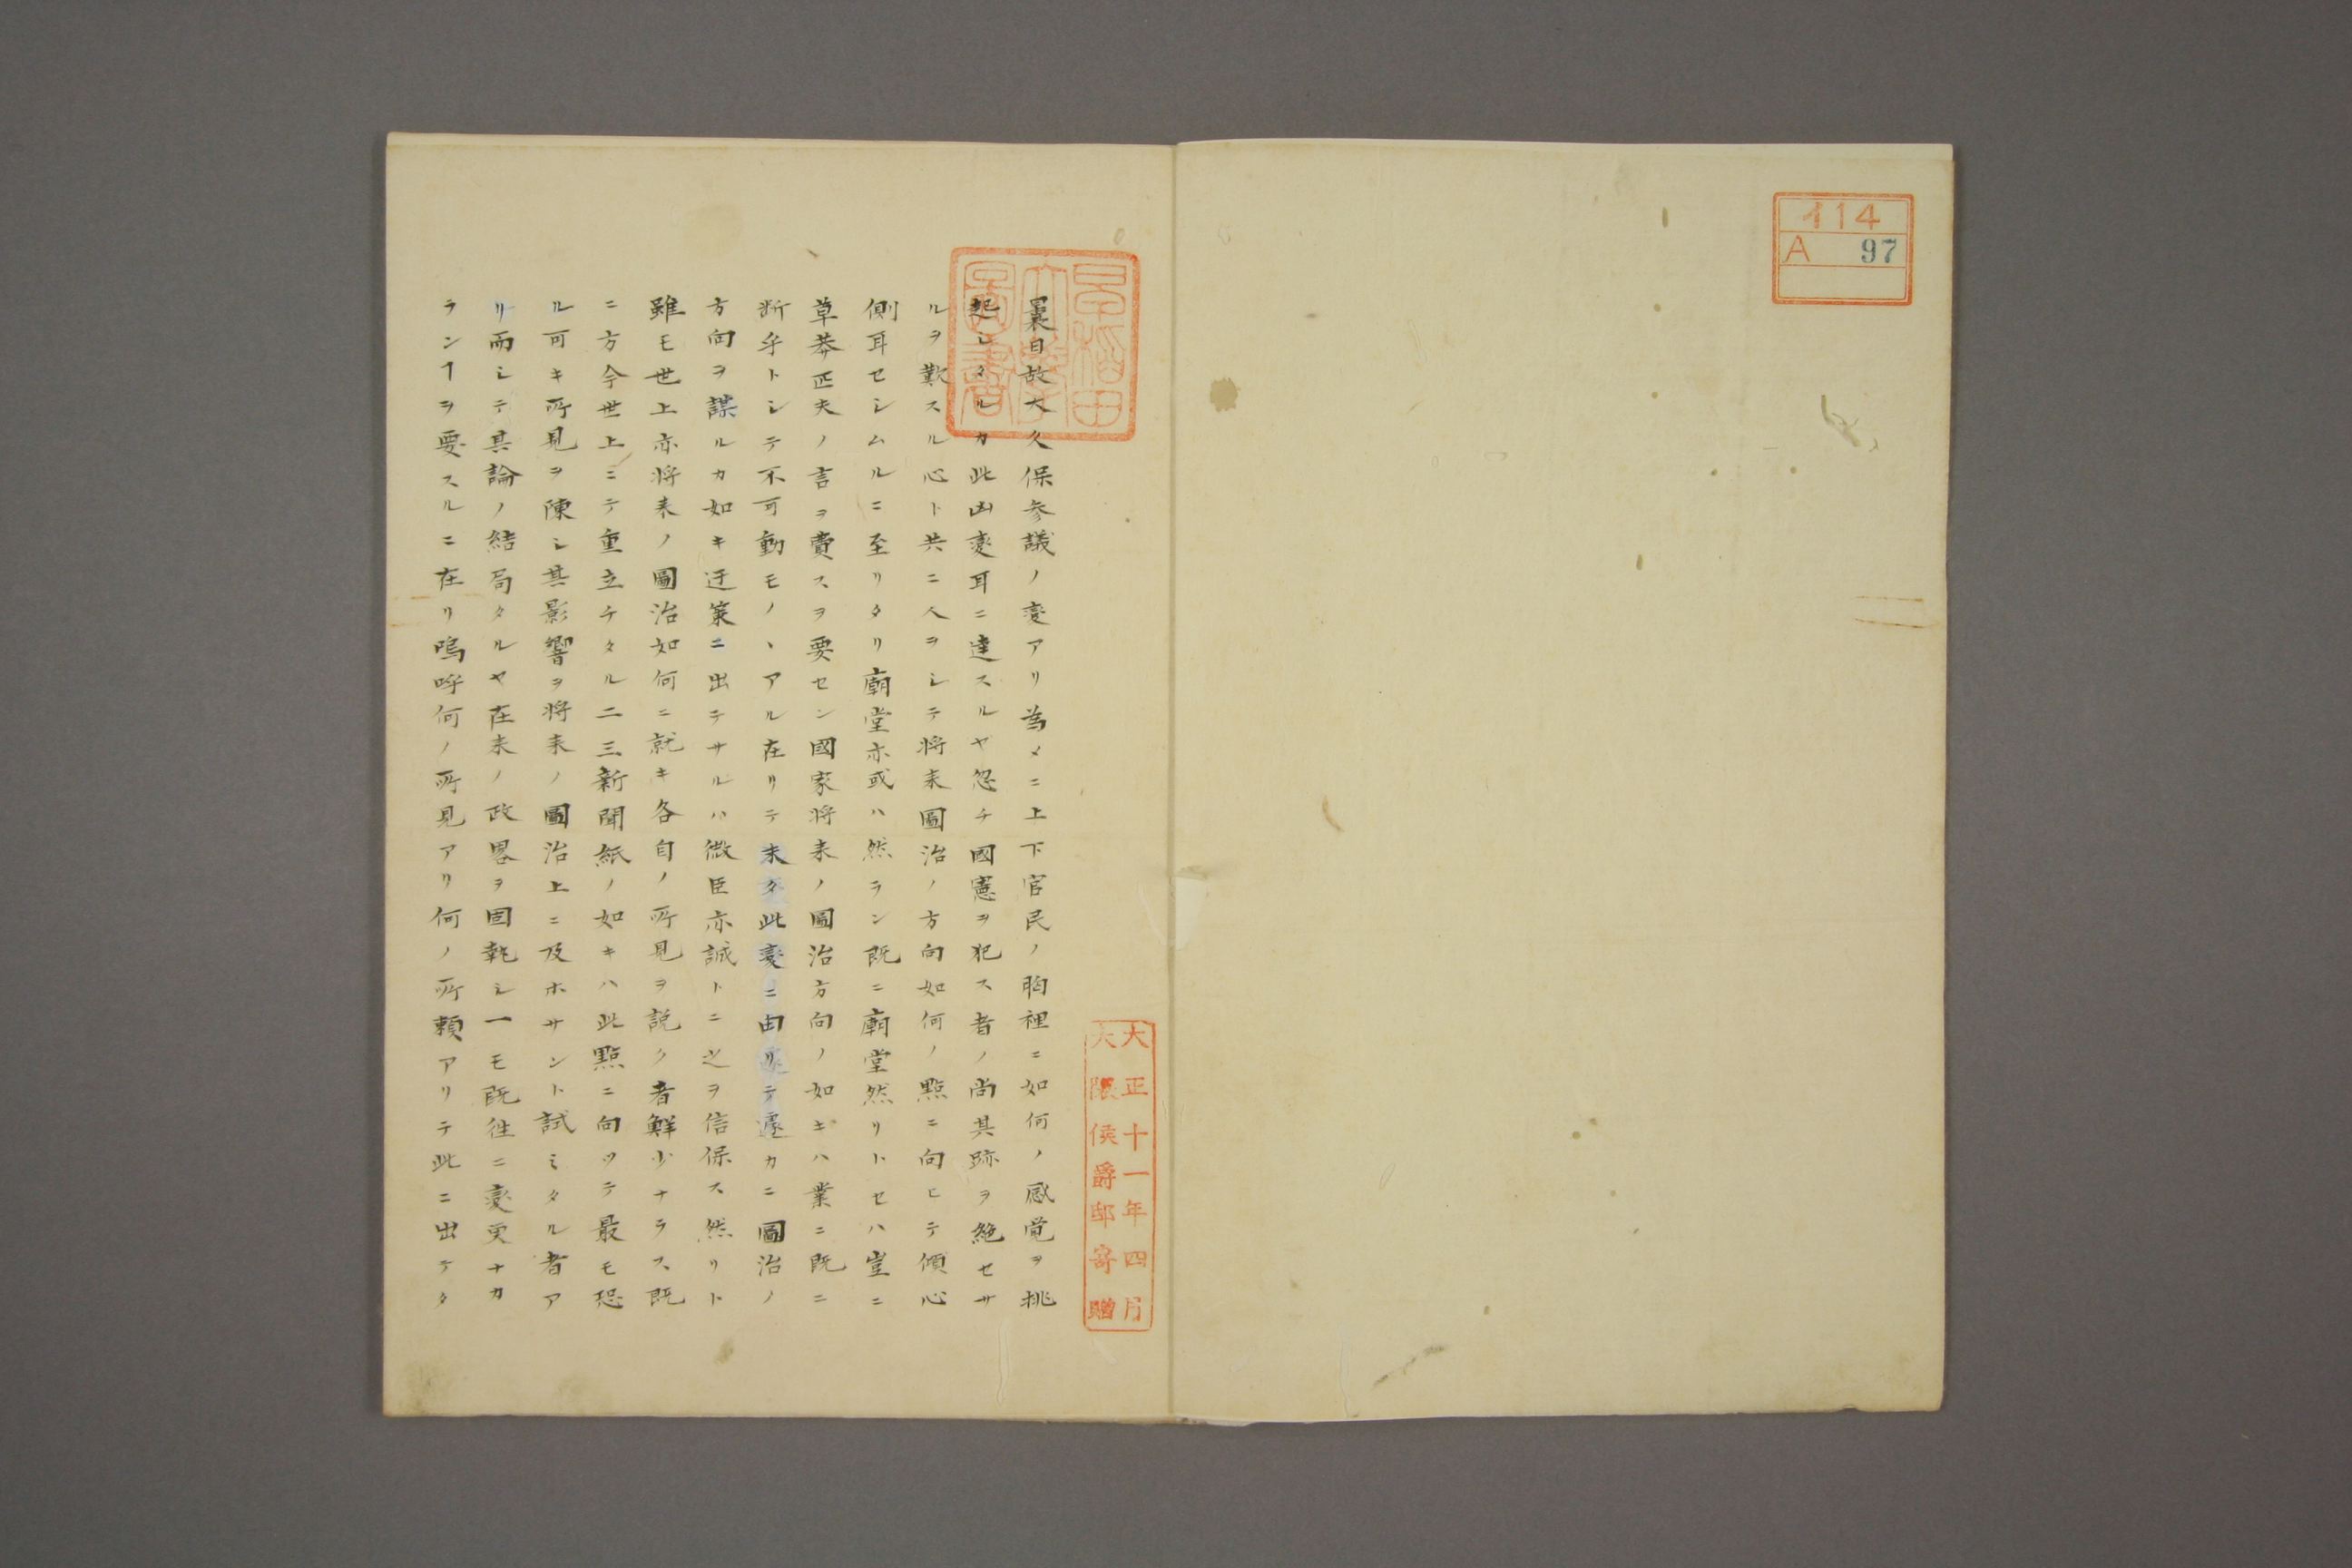 イ14
A 97
早稲田
大學
圖書
大正十一年四月
大隈侯爵邸寄贈
曩日故大久保参議ノ変アリ為メニ上下官民ノ胸裡ニ如何ノ感覚ヲ挑
起シタルカ此凶変耳ニ達スルヤ忽チ國憲ヲ犯ス者ノ尚其跡ヲ絶セサ
ルヲ歎スル心ト共ニ人ヲシテ将来圖治ノ方向如何ノ點ニ向ヒテ傾心
側耳セシムルニ至リタリ廟堂亦或ハ然ラン既ニ廟堂然リトセハ豈ニ
草莽匹夫ノ言ヲ費スヲ要セン國家将来ノ圖治方向ノ如キハ業ニ既ニ
断乎トシテ不可動モノヽアル在リテ未タ此変ニ由リテ遽カニ圖治ノ
方向ヲ謀ルカ如キ迂策ニ出テサルハ微臣亦誠トニ之ヲ信保ス然リト
雖モ世上亦将来ノ圖治如何ニ就キ各自ノ所見ヲ説ク者鮮少ナラス既
ニ方今世上ニテ重立チタル二三新聞紙ノ如キハ此點ニ向ツテ最モ恐
ル可キ所見ヲ陳シ其影響ヲ将来ノ圖治上ニ及ホサント試ミタル者ア
リ而シテ其論ノ結局タルヤ在来ノ政畧ヲ固執シ一モ既往ニ変更ナカ
ランヿヲ要スルニ在リ嗚呼何ノ所見アリ何ノ所頼アリテ此ニ出テタ